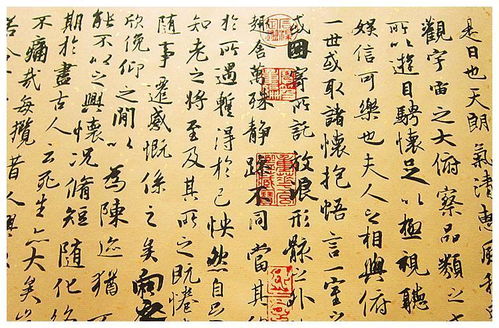 是日也天朗氣清惠風和
觀宇宙之大俯察品類之
所以遊目騁懷足以極視聽
娛信可樂也夫人之相與俯
一世或取諸懷抱悟言一室之
或因寄所託放浪形骸之外
趣舍萬殊靜躁不同當其
於所遇蹔得於己怏然自足
知老之將至及其所之既惓
隨事遷感慨係之矣向之
欣俛仰之間以為陳迹猶
能不以之興懷况脩短隨化
期於盡古人云死生亦大矣
不痛哉每攬昔人興
若合